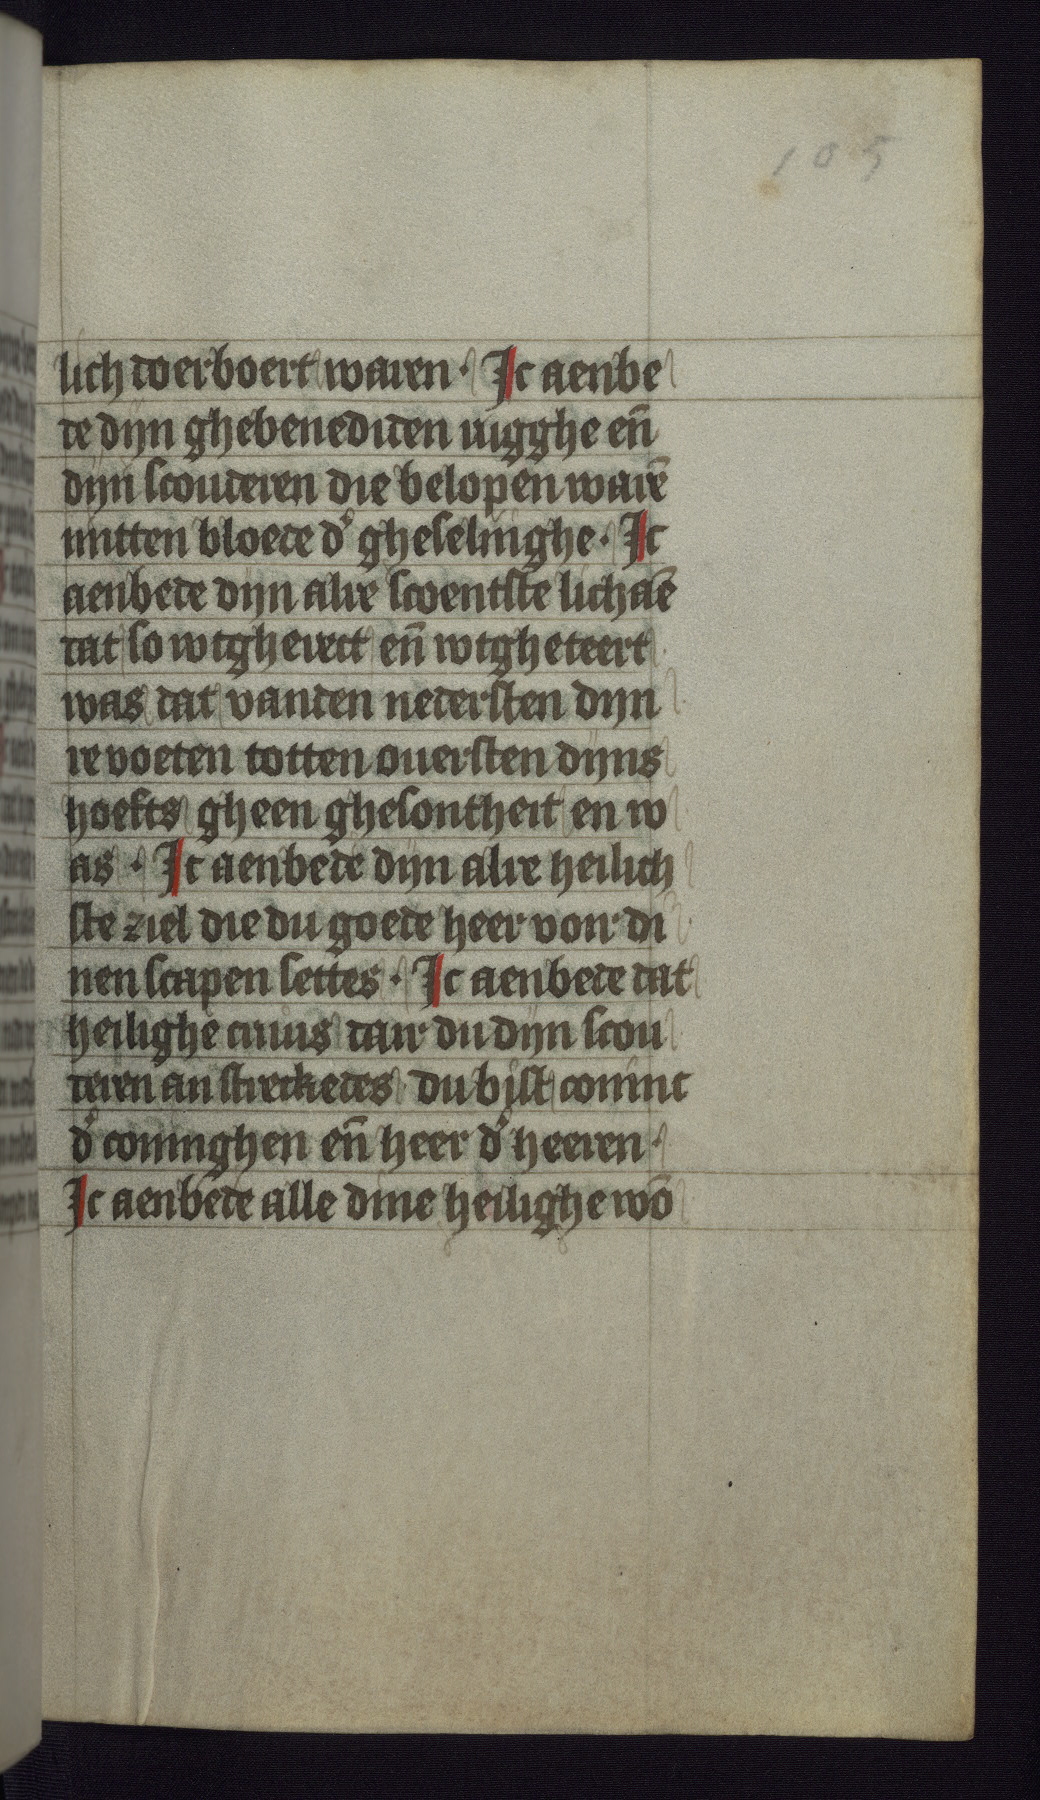 105
lich doerboert waren · Ic aenbe
de dijn ghebenediden rugghe en̄
dijn scouderen die belopen warē
mitten bloede d' gheselinghe · Ic
aenbede dijn alre scoentste lichaē
dat so wtgherect en̄ wtgheteert
was dat vanden nedersten dijn
re voeten totten ouersten dijns
hoefts gheen ghesontheit en w
as · Ic aenbede dijn alre heilich
ste ziel die du goede heer voir di
nen scapen settes · Ic aenbede dat
heilighe cruus dair du dijn scou
deren an streckedes du bist coninc
d' coninghen en̄ heer d' heeren ·
Ic aenbede alle dine heilighe wō